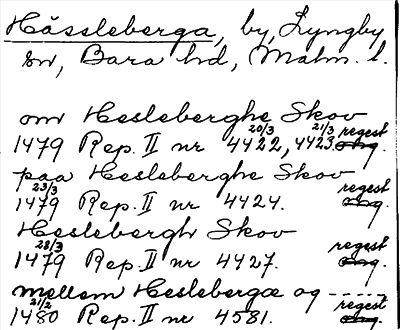 Hässleberga, by, Lyngby
sn, Bara hd, Malm. l.
om Hesleberghe Skov
1479 Rep. II nr 20/3 4422, 21/3 4423. regest
paa Hesleberghe Skov
23/3 1479 Rep. II nr 4424. regest
Heslebergh Skov
28/3 1479 Rep. II nr 4427. regest
mellem Heslebergæ og -----
21/2 1480 Rep. II nr 4581. regest